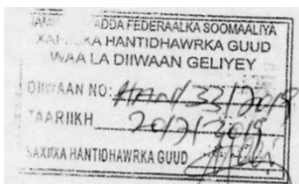 ADDA FEDERAALKA SOOMAALIYA
HANTIDHAWRKA GUUD
WAA LA DIIWAAN GELIYEY
DIIWAAN NO: 33/2019
TAARIIKH 20/2/2019
SAXIIXA HANTIDHAWRKA GUUD